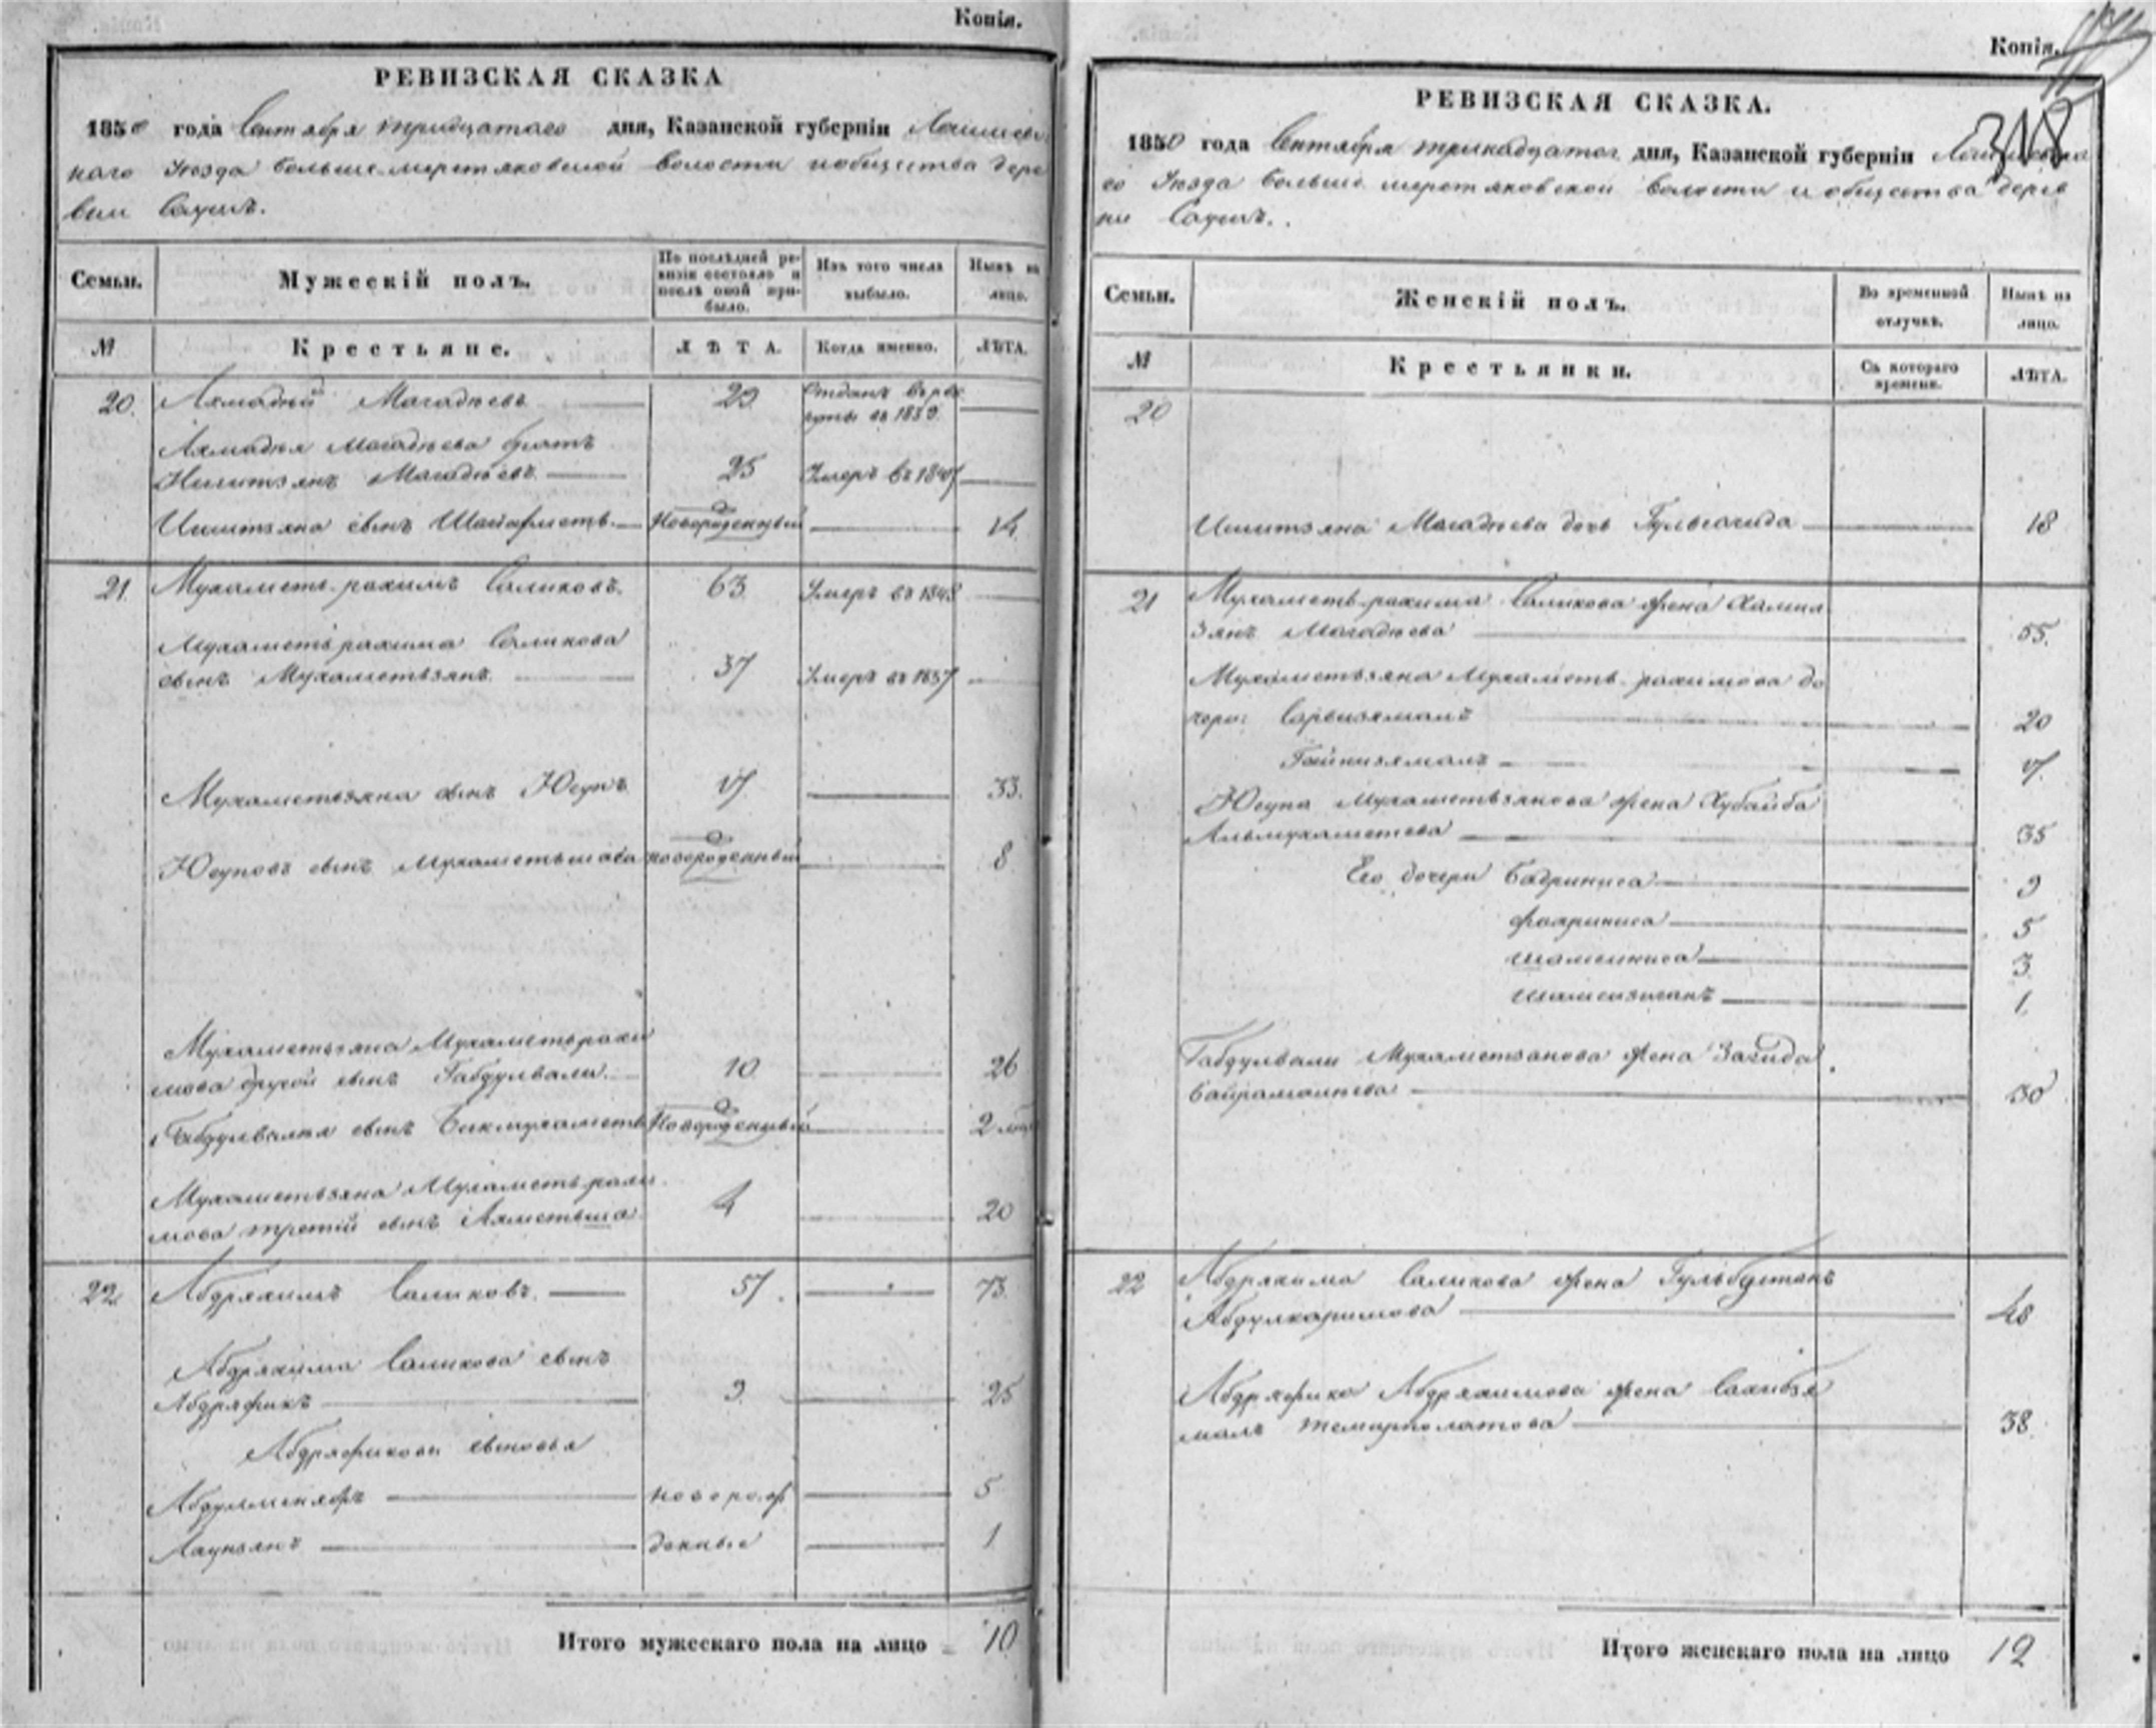 Копія.
РЕВИЗСКАЯ СКАЗКА
1850 года Сентября тридцатаго дня, Казанской губерніи Лаишевс
каго Уезда больше меретяковской волости и общества дере
вни Сауш.
Семьи.
Мужескій полъ.
По послѣдней ре-
визіи состояло и
послѣ оной при-
было.
Изъ того числа
выбыло.
Нынѣ на
лицо.
№
Крестьяне.
ЛѢТА.
Когда именно.
ЛѢТА.
20. Ахмадѣй Магадѣевъ 29 Отданъ въ рек
руты въ 1839.
Ахмадѣя Магадѣева братъ
Ишитзянъ Магадѣевъ 25 Умеръ въ 1847
Ишитзяна сынъ Шайафметъ Новорожденный 14
21. Мухаметь-рахимъ Саликовъ. 63 Умеръ въ 1843
Мухаметьрахима Саликова
сынъ Мухаметьзянъ 37 Умеръ въ 1857
Мухаметьзяна сынъ Юсупъ 17 33.
Юсуповъ сынъ Мухаметьшага новорожденный 8
Мухаметьзяна Мухаметьрахи
мова другой сынъ Габдулвали 10 26
Габдулвалія сынъ Бикмухаметь Новорожденный 2 мѣс
Мухаметьзяна Мухаметьрахи
мова третій сынъ Ахметьша 4 20
22. Абдряхимъ Саликовъ. 57 73.
Абдряхима Саликова сынъ
Абдряфикъ 9. 25
Абдряфикова сыновья
Абдулменяфъ новорож 5
Лаунзянъ денные 1
Итого мужескаго пола на лицо 10
Копія.
318
РЕВИЗСКАЯ СКАЗКА.
1850 года Сентября тринадцатаго дня, Казанской губерніи Лаишевска
го Уезда больше меретяковской волости и общества дерев
ни Сауш.
Семьи.
Женскій полъ.
Во временной
отлучкѣ.
Нынѣ на
лицо.
№
Крестьянки.
Съ котораго
времени.
ЛѢТА.
20
Ишитзяна Магадѣева дочь Гульсагида 18
21 Мухаметь-рахима Саликова жена Халил
зянъ Магадѣева 55.
Мухаметьзяна Мухаметь-рахимова до
чери: Сарвизямалъ 20
Гайнизямалъ 17
Юсупа Мухаметьзянова жена Хубайба
Альмухаметева 35
Его дочери Бадриниса 9
Фахриниса 5
Шамсиниса 3
Шамсизиганъ 1
Габдулвали Мухаметзанова жена Загида
Байрамалиева 30
22 Абдряхима Саликова жена Гульбустанъ
Абдулкаримова 48
Абдряфика Абдряхимова жена Сахибзя
малъ Темирполатова 38
Итого женскаго пола на лицо 12